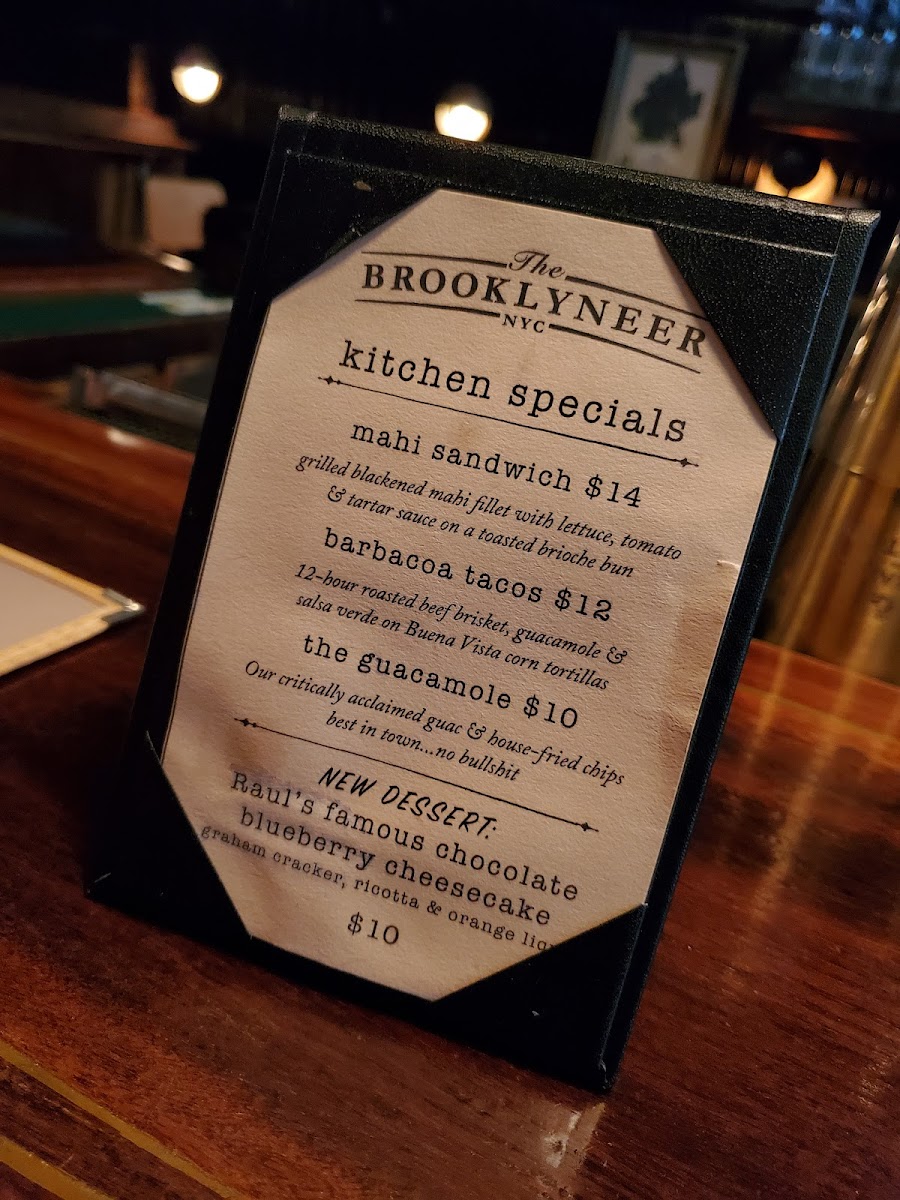 The
BROOKLYNEER
NYC
kitchen specials
mahi sandwich $14
grilled blackened mahi fillet with lettuce, tomato
& tartar sauce on a toasted brioche bun
barbacoa tacos $12
12-hour roasted beef brisket, guacamole &
salsa verde on Buena Vista corn tortillas
the guacamole $10
Our critically acclaimed guac & house-fried chips
best in town...no bullshit
NEW DESSERT:
Raul's famous chocolate
blueberry cheesecake
graham cracker, ricotta & orange
$10